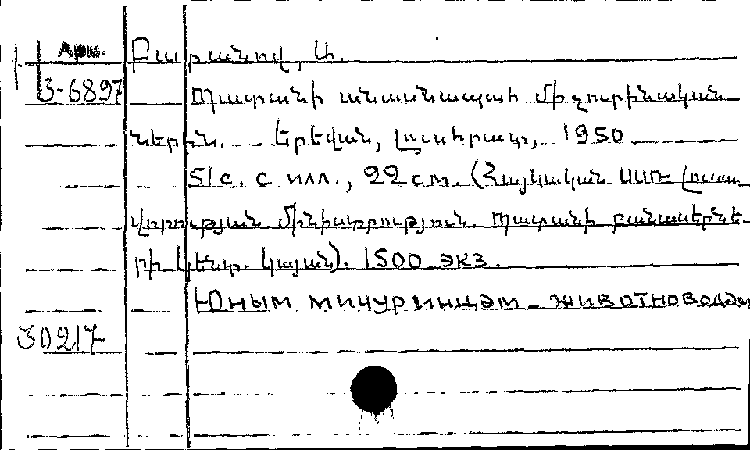 Арм. Բարանով, Ա.
3-6897 Պատանի անասնապահ միչուրինական
ներին. Երեվան, Լուսհրատ, 1950
51 с. с илл., 22 см. (Հայկական ՍՍՌ Լուսա-
վորության մինիստրություն. Պատանի բանասերնե-
րի կենտ. կայան). 1500 экз.
Юным мичуринцам-животноводам
30217